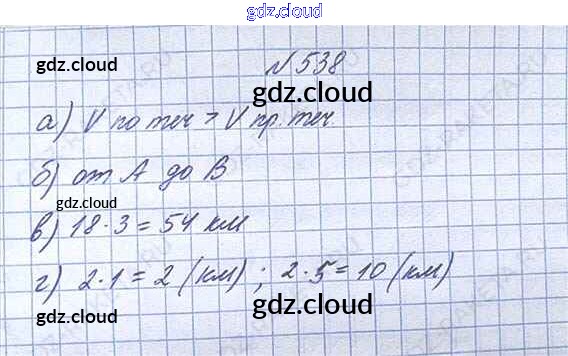 gdz.cloud
gdz.cloud
№538
gdz.cloud
а) V по теч > V пр. теч.
б) от А до В
gdz.cloud
в) 18·3=54 км
г) 2·1=2 (км); 2·5=10 (км)
gdz.cloud
gdz.cloud